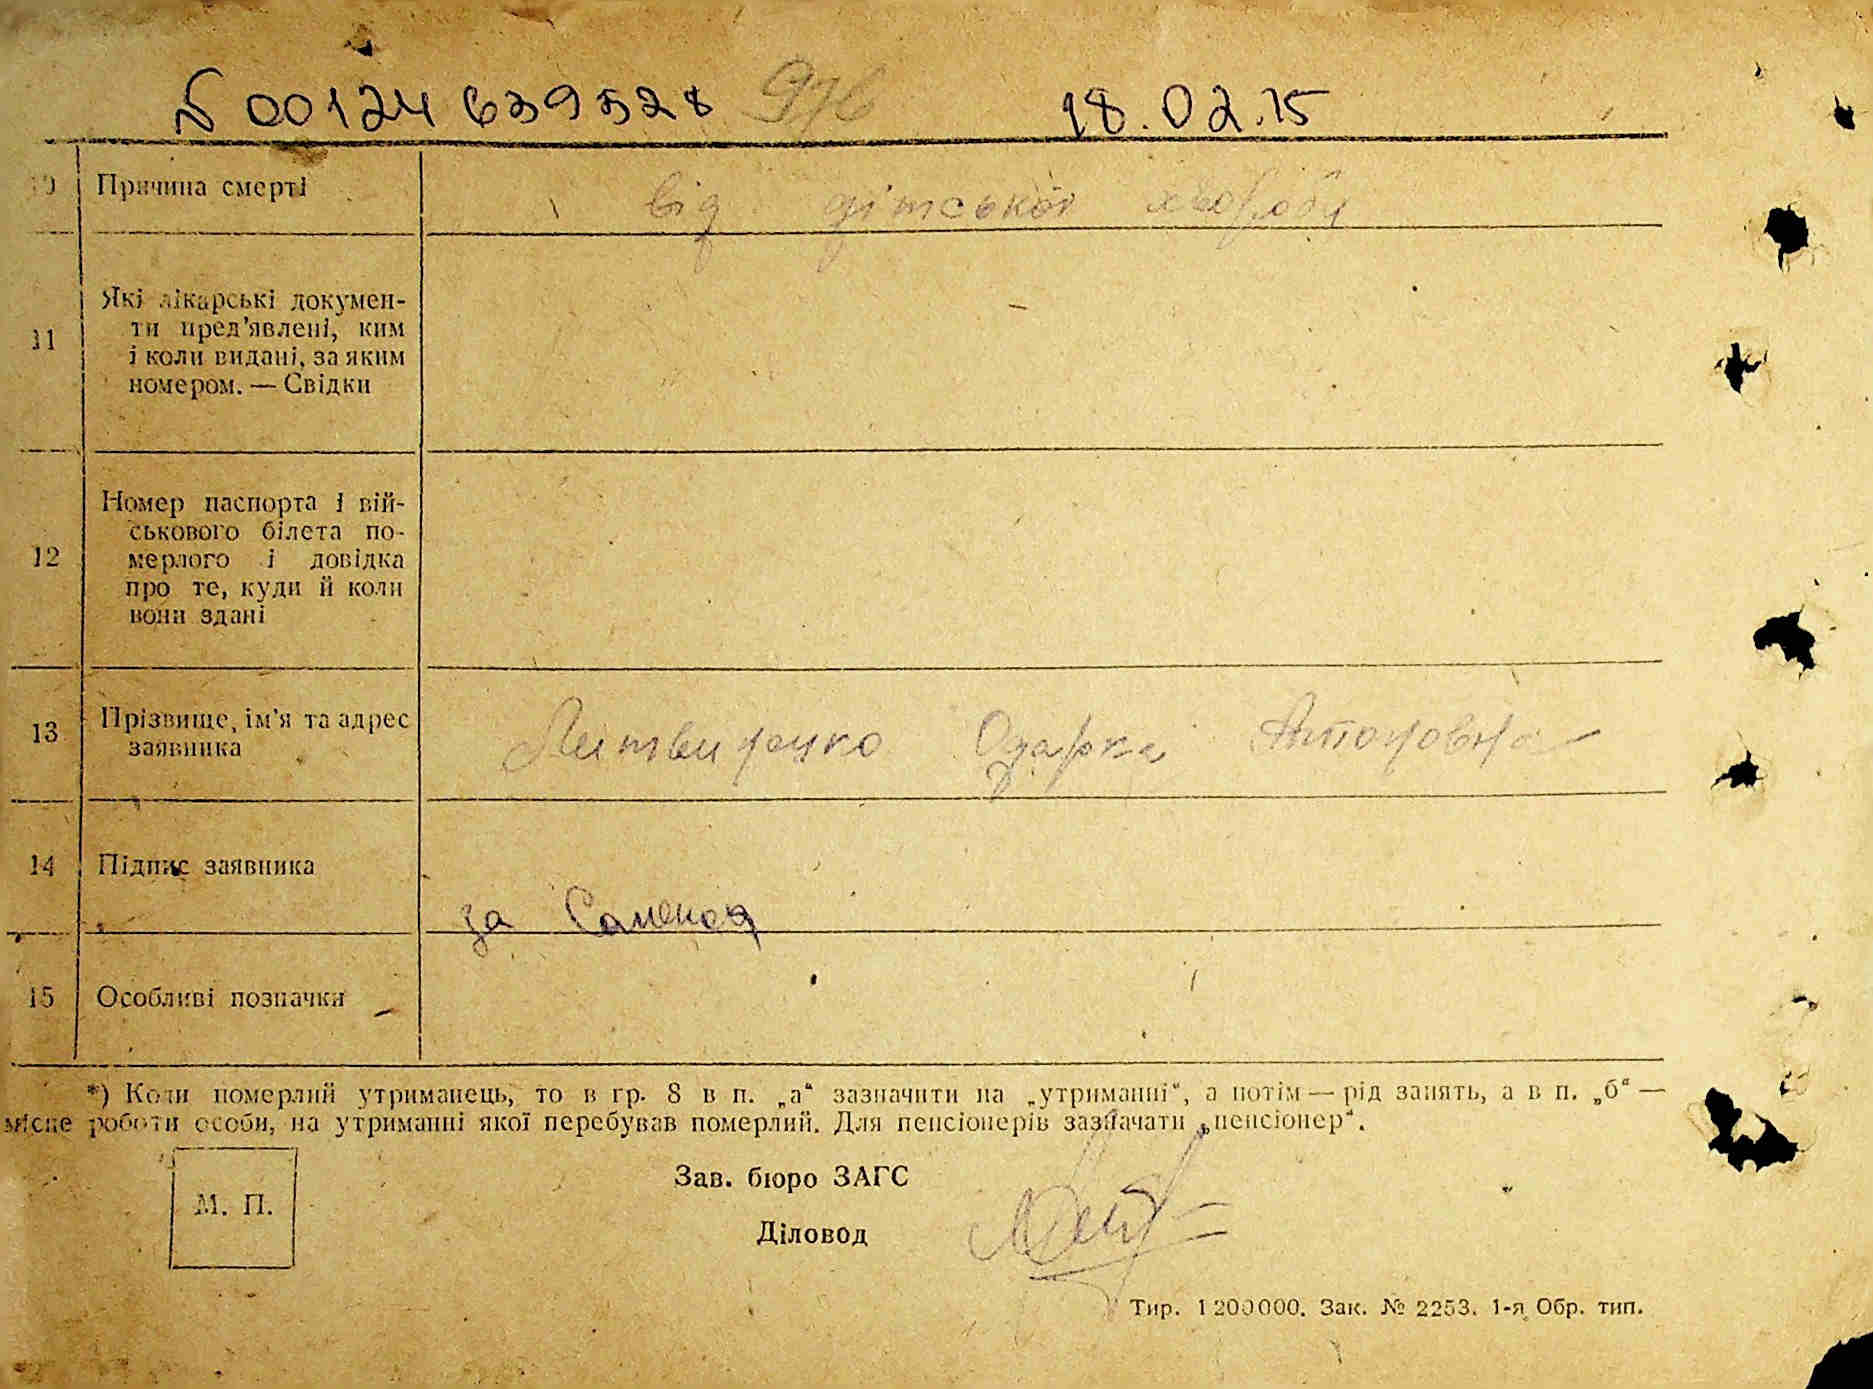 № 00124639528 976 18.02.15
10 Причина смерті від дітської хвороби
11 Які лікарські докумен-
ти пред'явлені, ким
і коли видані, за яким
номером. — Свідки
12 Номер паспорта і вій-
ськового білета по-
мерлого і довідка
про те, куди й коли
вони здані
13 Прізвище, ім'я та адрес
заявника
Литвиненко Одарка Антоновна
14 Підпис заявника
за
15 Особливі позначки
*) Коли померлий утриманець, то в гр. 8 в п. „а“ зазначити на „утриманні“, а потім — рід занять, а в п. „б“ —
місце роботи особи, на утриманні якої перебував померлий. Для пенсіонерів зазначати „пенсіонер“.
М. П.
Зав. бюро ЗАГС
Діловод
Тир. 1200000. Зак. № 2253. 1-я Обр. тип.